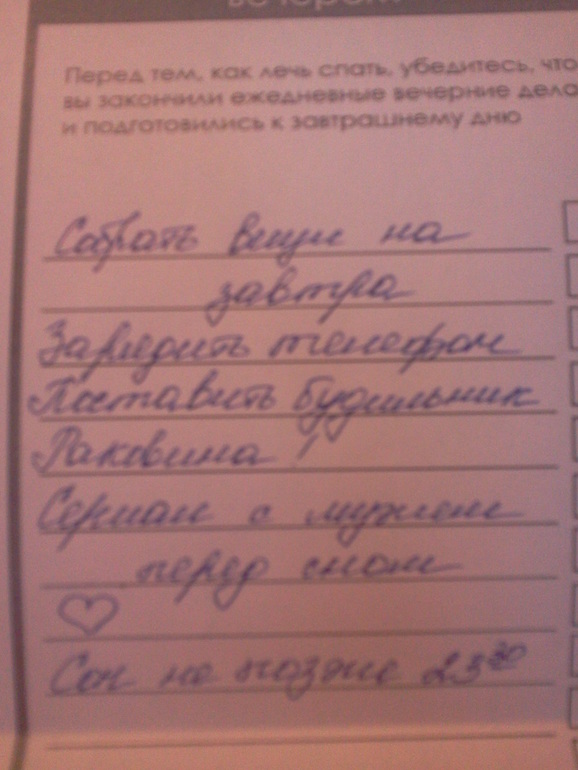 вечером
Перед тем, как лечь спать, убедитесь, что
вы закончили ежедневные вечерние дела
и подготовились к завтрашнему дню
Собрать вещи на
завтра
Зарядить телефон
Поставить будильник
Раковина!
Сериал с мужем
перед сном
♡
Сон не позже 23³⁰